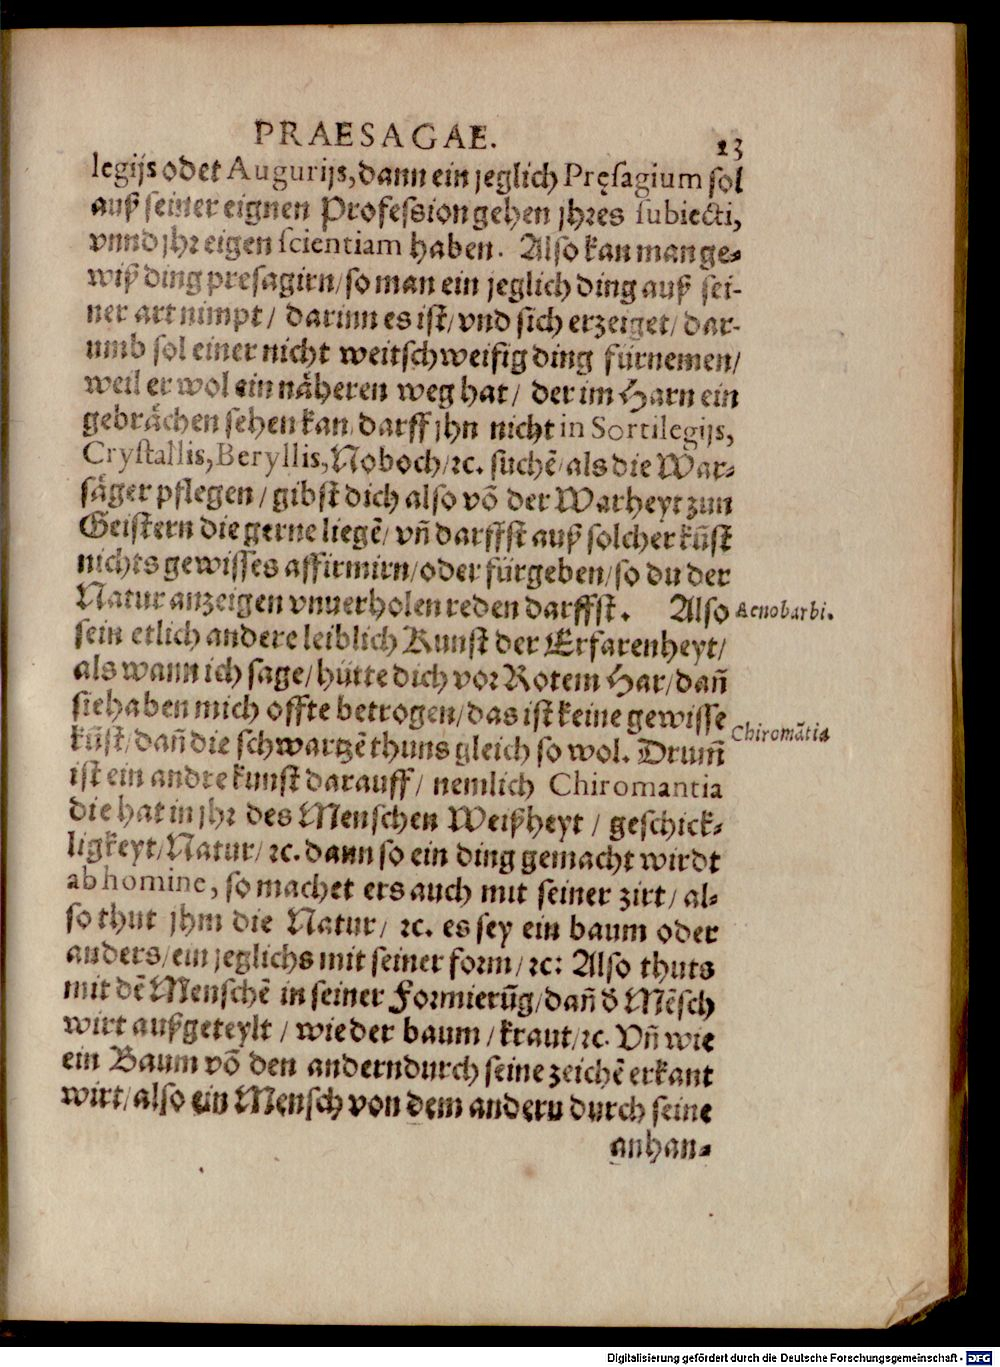 PRAESAGAE. 23
legijs odet Augurijs, dann ein jeglich Pręsagium sol
auß seiner eignen Profession gehen jhres subiecti,
vnnd jhr eigen scientiam haben. Also kan man ge-
wiß ding presagirn/ so man ein jeglich ding auß sei-
ner art nimpt/ darinn es ist/ vnd sich erzeiget/ dar-
umb sol einer nicht weitschweifig ding fürnemen/
weil er wol ein näheren weg hat/ der im Harn ein
gebrächen sehen kan/ darff jhn nicht in Sortilegijs,
Crystallis, Beryllis, Noboch/ ꝛc. suchē/ als die War-
säger pflegen/ gibst dich also võ der Warheyt zun
Geistern die gerne liegē/ vñ darffst auß solcher kũst
nichts gewisses affirmirn/ oder fürgeben/ so du der
Natur anzeigen vnuerholen reden darffst. Also
Aenobarbi.
sein etlich andere leiblich Kunst der Erfarenheyt/
als wann ich sage/ hütte dich vor Rotem Har/ dañ
sie haben mich offte betrogen/ das ist keine gewisse
Chiromãtia
kũst/ dañ die schwartzē thuns gleich so wol. Drum̃
ist ein andre kunst darauff/ nemlich Chiromantia
die hat in jhr des Menschen Weißheyt/ geschick-
ligkeyt/ Natur/ ꝛc. dann so ein ding gemacht wirdt
ab homine, so machet ers auch mit seiner zirt/ al-
so thut jhm die Natur/ ꝛc. es sey ein baum oder
anders/ ein jeglichs mit seiner form/ ꝛc: Also thuts
mit dē Menschē in seiner Formierũg/ dañ d̕ Mēsch
wirt außgeteylt/ wie der baum/ kraut/ ꝛc. Vñ wie
ein Baum võ den andern durch seine zeichē erkant
wirt/ also ein Mensch von dem andern durch seine
anhan-
Digitalisierung gefördert durch die Deutsche Forschungsgemeinschaft - DFG